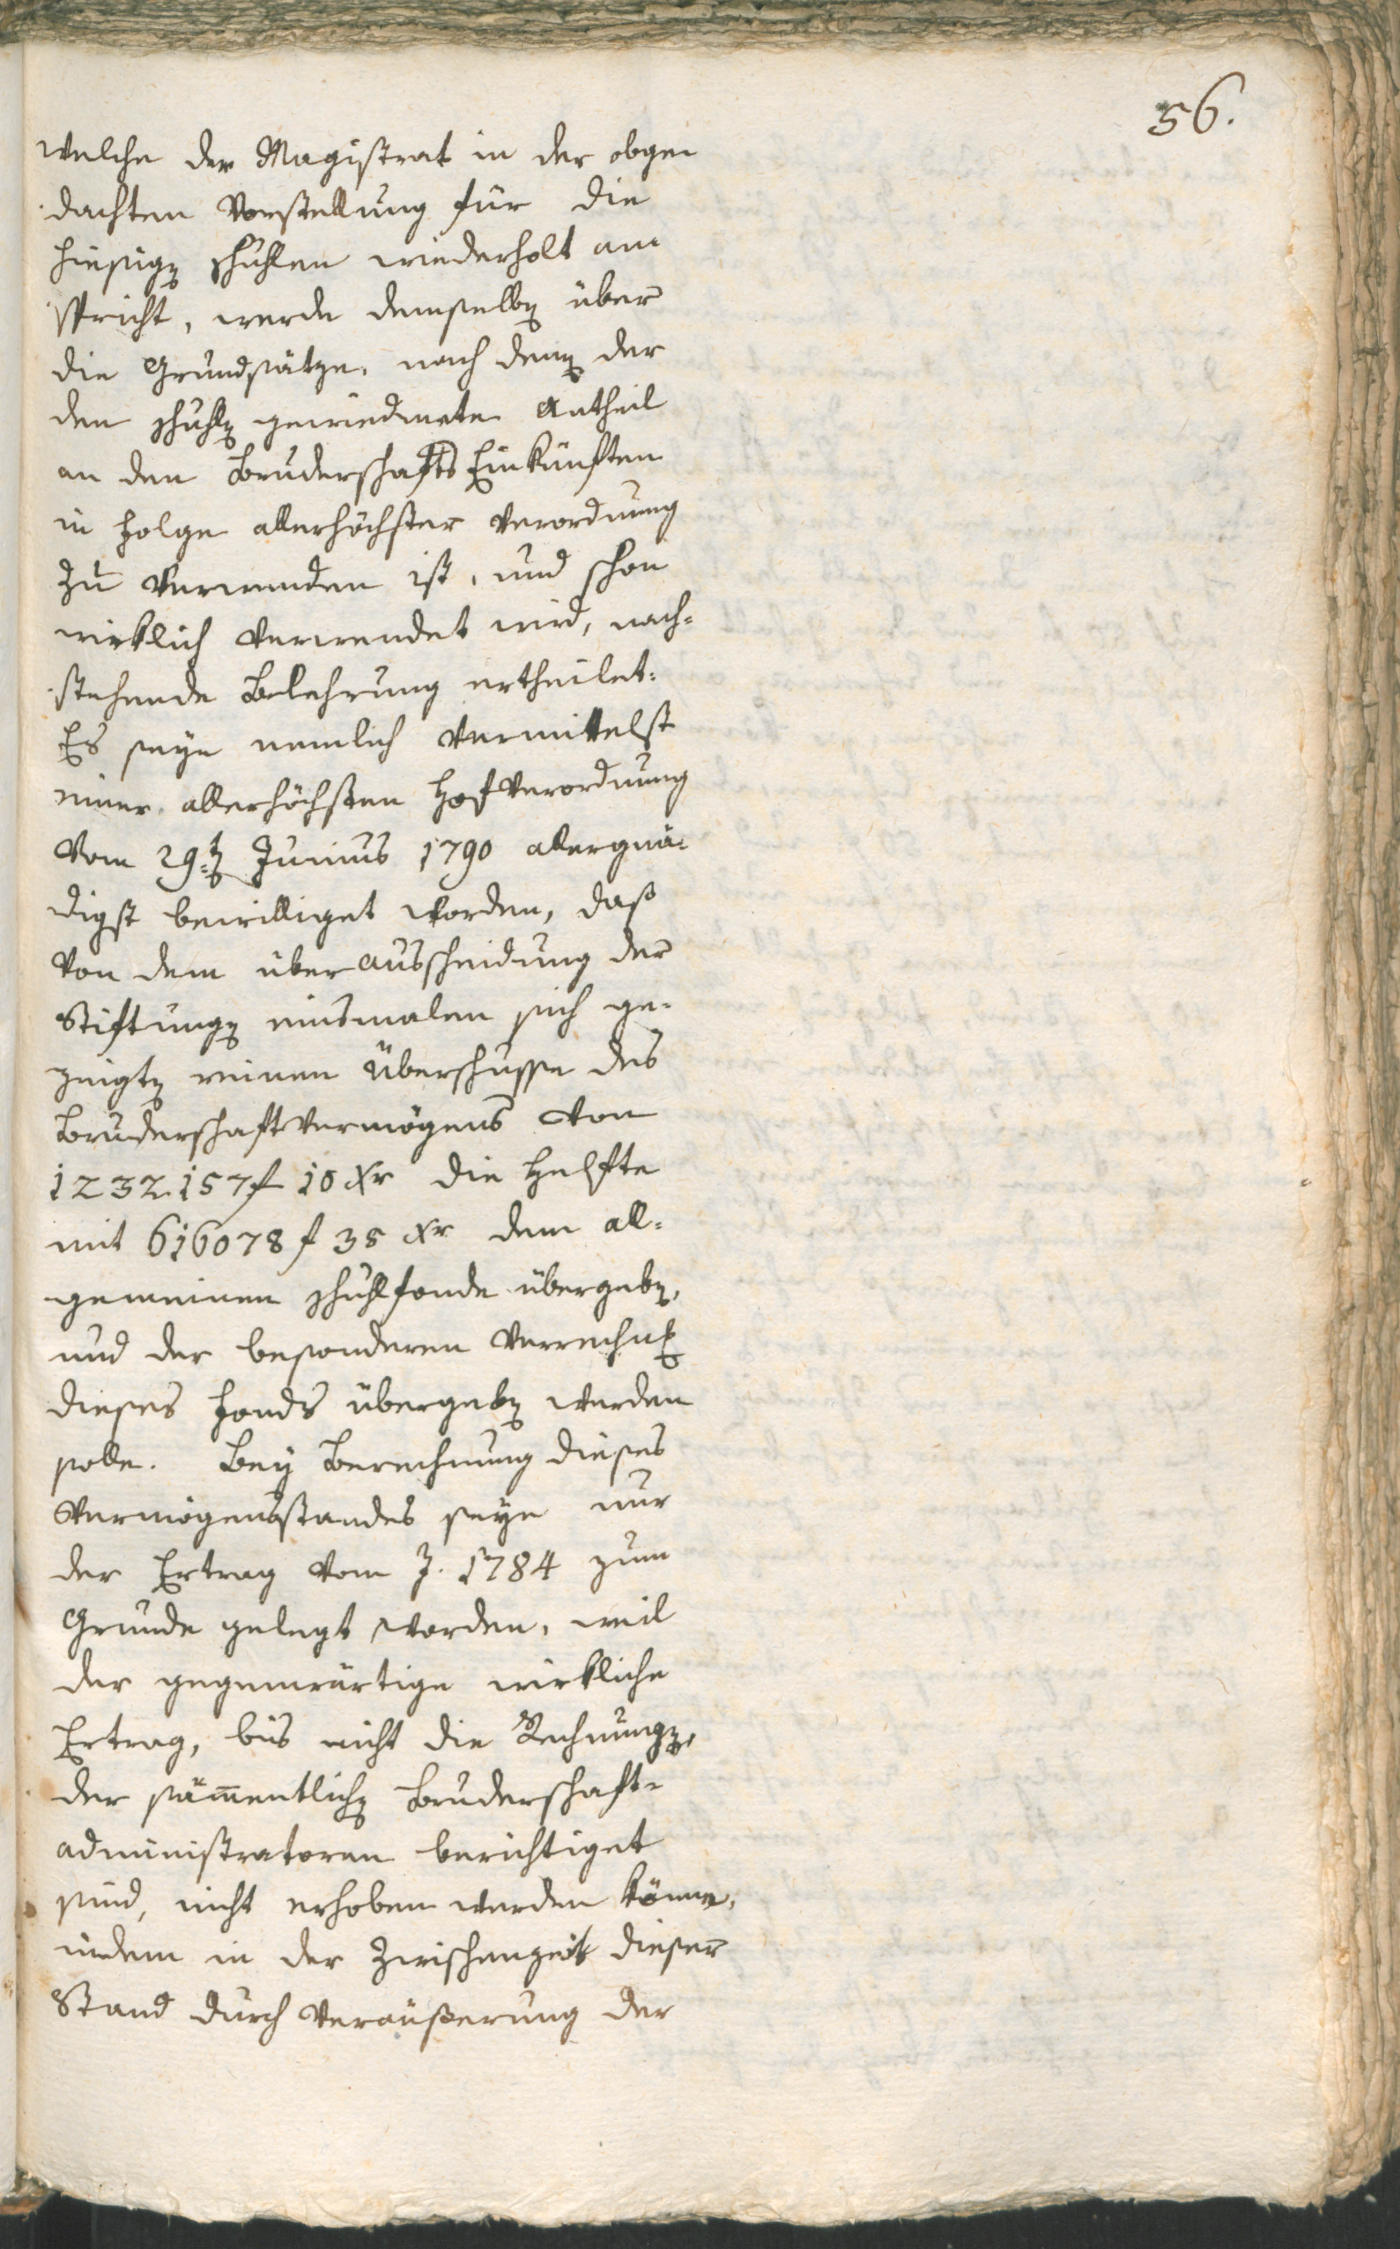 56.
welche der Magistrat in der obge-
dachten Vorstellung für die
hiesigen Schuhlen wiederholt an-
spricht, werde demselben über
die Grundsätze, nach denen der
den Schuhlen gewiedmete Antheil
an den Bruderschafts Einkünften
in Folge allerhöchster Verordnung
zu verwenden ist, und schon
wirklich verwendet wird, nach-
stehende Belehrung ertheilet:
Es seye nemlich vermittelst
einer allerhöchsten Hofverordnung
vom 29ten Junius 1790 allergnä-
digst bewilliget worden, daß
von dem über Ausscheidung der
Stiftungen einsmalen sich ge-
zeigten reinen Überschusse des
Bruderschaftvermögens von
1232157 f 10 xr die Helfte
mit 616078 f 35 xr dem all-
gemeinen Schuhlfonde übergeben,
und der besonderen Verrechnung
dieses Fonds übergeben werden
solle. Bey Berechnung dieses
Vermögensstandes seye nur
der Ertrag vom J. 1784 zum
Grunde gelegt worden, weil
der gegenwärtige wirkliche
Ertrag, bis nicht die Rechnungen,
der sämmentlichen Bruderschaft-
administratoren berichtiget
sind, nicht erhoben werden könne,
indem in der Zwischenzeit dieser
Stand durch Veräußerung der